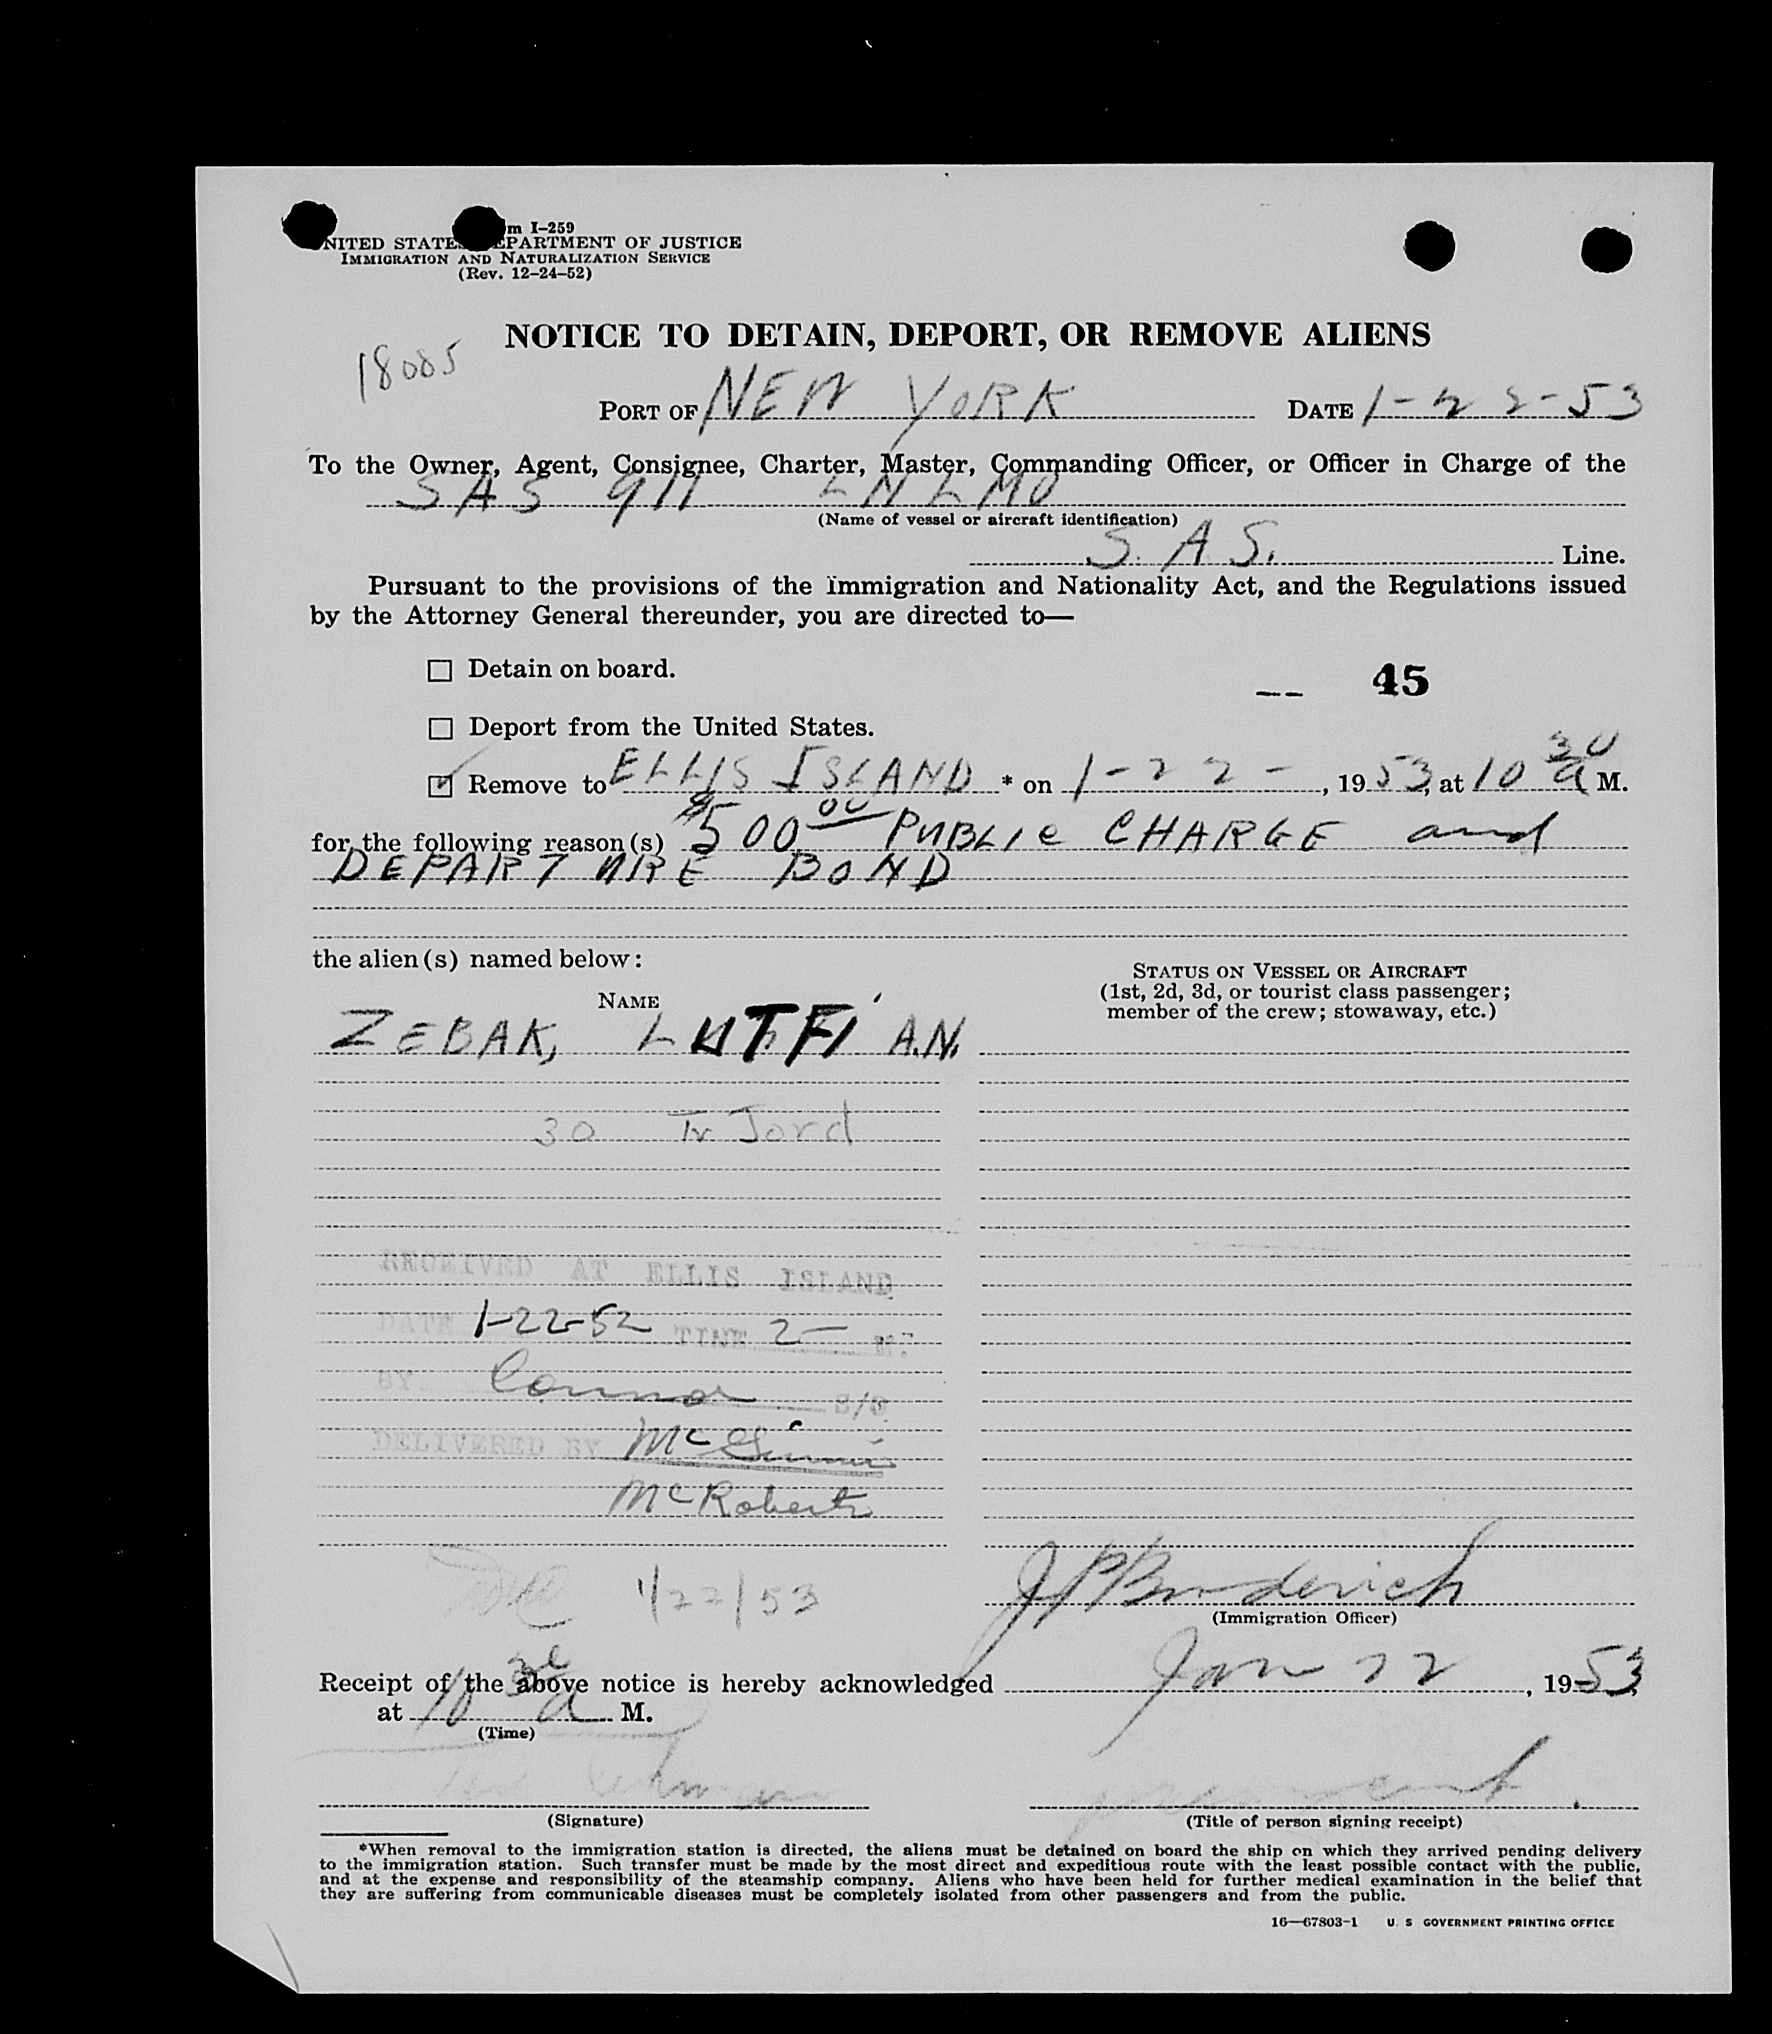 m I-259
NITED STATE EPARTMENT OF JUSTICE
IMMIGRATION AND NATURALIZATION SERVICE
(Rev. 12-24-52)
NOTICE TO DETAIN, DEPORT, OR REMOVE ALIENS
18085
PORT OF NEW YORK DATE 1-22-53
To the Owner, Agent, Consignee, Charter, Master, Commanding Officer, or Officer in Charge of the
SAS 911 LNLMO
(Name of vessel or aircraft identification)
S.A.S. Line.
Pursuant to the provisions of the Immigration and Nationality Act, and the Regulations issued
by the Attorney General thereunder, you are directed to—
☐ Detain on board.
-- 45
☐ Deport from the United States.
☑ Remove to ELLIS ISLAND * on 1-22-, 1953, at 10 30 a M.
for the following reason(s) $500.00 PUBLIC CHARGE and
DEPARTURE BOND
the alien(s) named below:
STATUS ON VESSEL OR AIRCRAFT
(1st, 2d, 3d, or tourist class passenger;
member of the crew; stowaway, etc.)
NAME
ZEBAK, LUTFI A.N.
30 Tr Jord
RECEIVED AT ELLIS ISLAND
DATE 1-22-52 TIME 2- M.
BY Connor S/O
DELIVERED BY McGinnis
McRoberts
1/22/53
JP Broderick
(Immigration Officer)
Receipt of the above notice is hereby acknowledged Jan 22, 1953,
at 10 30 a M.
(Time)
(Signature)
(Title of person signing receipt)
*When removal to the immigration station is directed, the aliens must be detained on board the ship on which they arrived pending delivery
to the immigration station. Such transfer must be made by the most direct and expeditious route with the least possible contact with the public,
and at the expense and responsibility of the steamship company. Aliens who have been held for further medical examination in the belief that
they are suffering from communicable diseases must be completely isolated from other passengers and from the public.
16—67803-1 U. S. GOVERNMENT PRINTING OFFICE